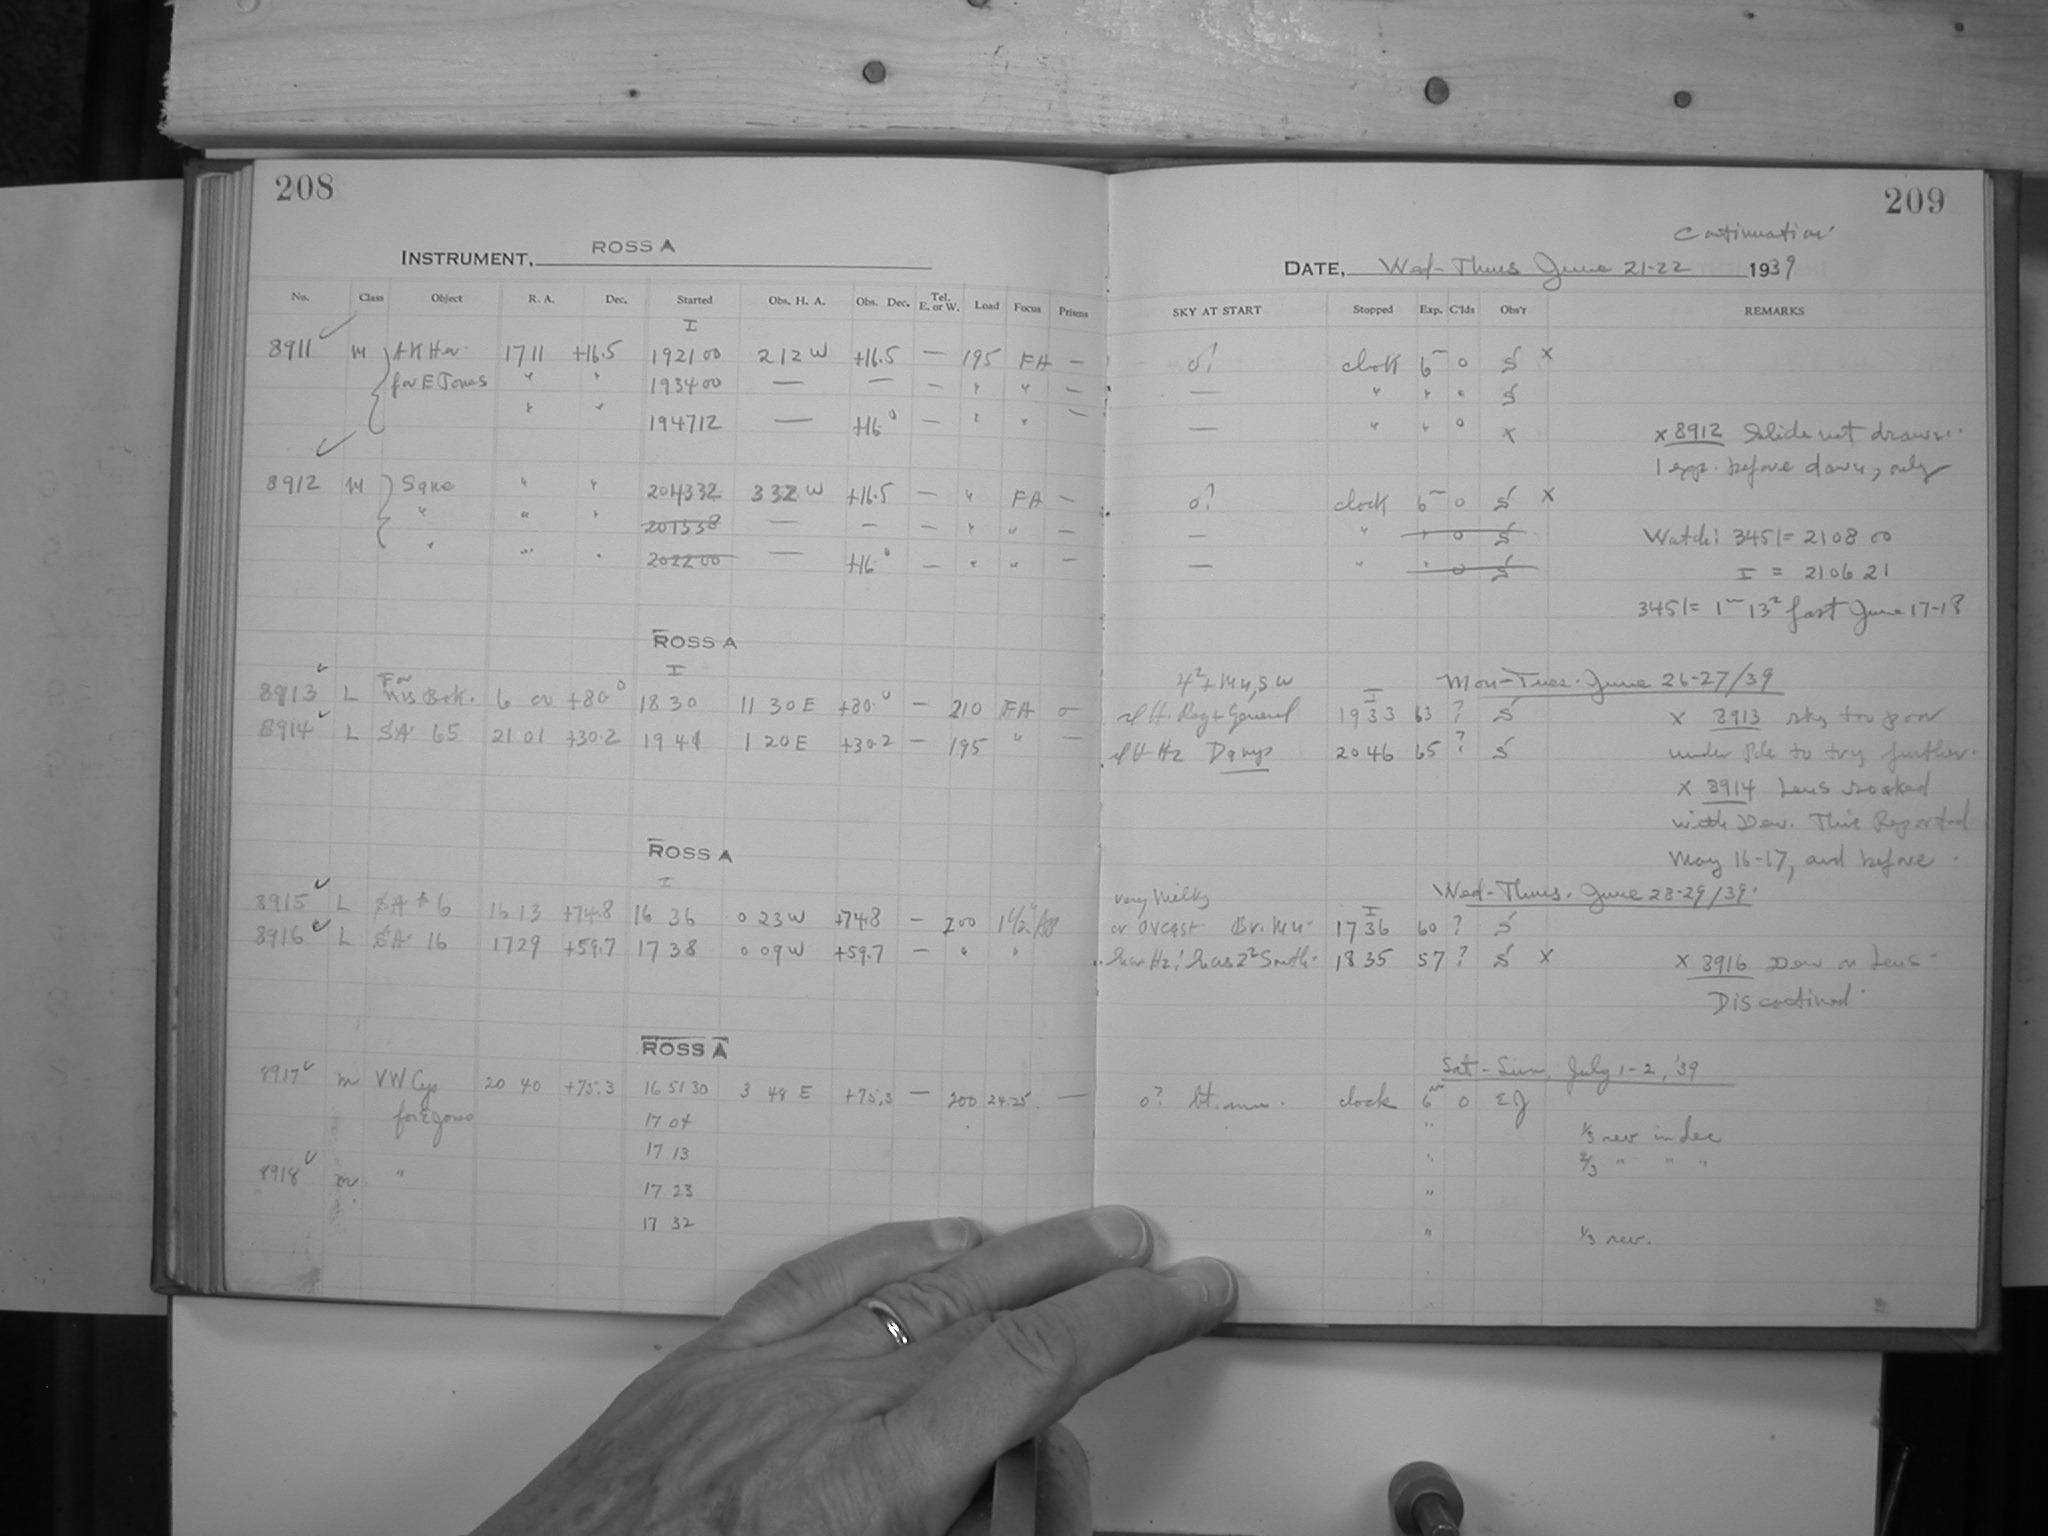 208
INSTRUMENT, ROSS A
No. Class Object R. A. Dec. Started Obs. H. A. Obs. Dec. Tel. E. or W. Load Focus Prisms
I
8911 M AK Her. 17 11 +16.5 19 21 00 2 12 W +16.5 — 195 FA —
for E Jones " " 19 34 00 — — — " " —
" " 19 47 12 — +16.0 — " " —
8912 M Same " " 20 43 32 3 32 W +16.5 — " FA —
" " " 20 13 38 — — — " " —
" " " 20 22 00 — +16.0 — " " —
ROSS A
I
8913 L For 6 00 +80° 18 30 11 30 E +80.° — 210 FA —
8914 L SA 65 21 01 +30.2 19 41 1 20 E +30.2 — 195 " —
ROSS A
I
8915 L SA 6 16 13 +74.8 16 36 0 23 W +74.8 — 200
8916 L SA 16 17 29 +59.7 17 38 0 09 W +59.7 — " "
ROSS A
8917 m VW Cyg 20 40 +75.3 16 51 30 3 48 E +75.3 — 200 24.25 —
for E Jones 17 04
17 13
8918 m "
17 23
17 32
209
Continuation
DATE, Wed-Thurs June 21-22 1939
SKY AT START Stopped Exp. C'lds Obs'r REMARKS
0? clock 6m 0 S x
— " " " S
— " " 0 x
x 8912 Slide not drawn.
1 exp. before dawn, only
0? clock 6m 0 S x
— " " 0 S
— " " 0 S
Watch: 3451 = 21 08 00
I = 21 06 21
3451 = 1m 13s fast June 17-18
Mon-Tues. June 26-27/39
I
General 19 33 63 ? S x 8913 sky too poor
under Pole to try further.
Hz Damp 20 46 65 ? S
x 8914 Lens soaked
with Dew. This Reported
May 16-17, and before.
Wed-Thurs. June 28-29/39.
very milky
I
or Ovcast Br. Mn. 17 36 60 ? S
South. 18 35 57 ? S x
x 8916 Dew on Lens.
Discontinued.
Sat-Sun, July 1-2, '39
0? clock 6m 0 EJ
" 1/3 rev in dec
" 2/3 " " "
"
" 1/3 rev.